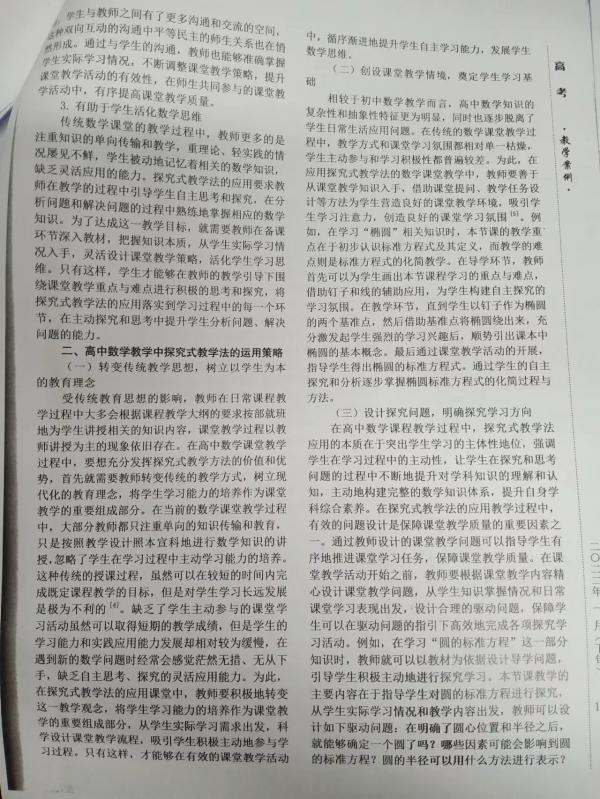 学生与教师之间有了更多沟通和交流的空间,
这种双向互动的沟通中平等民主的师生关系也在悄
然形成。通过与学生的沟通,教师也能够准确掌握
学生实际学习情况,不断调整课堂教学策略,提升
课堂教学活动的有效性,在师生共同参与的课堂教
学活动中,有序提高课堂教学质量。
3. 有助于学生活化数学思维
传统数学课堂的教学过程中,教师更多的是
注重知识的单向传输和教学,重理论、轻实践的情
况屡见不鲜,学生被动地记忆着相关的数学知识,
缺乏灵活应用的能力。探究式教学法的应用要求教
师在教学的过程中引导学生自主思考和探究,在分
析问题和解决问题的过程中熟练地掌握相应的数学
知识。为了达成这一教学目标,就需要教师在备课
环节深入教材,把握知识本质,从学生实际学习情
况入手,灵活设计课堂教学策略,活化学生学习思
维。只有这样,学生才能够在教师的教学引导下围
绕课堂教学重点与难点进行积极的思考和探究,将
探究式教学法的应用落实到学习过程中的每一个环
节,在主动探究和思考中提升学生分析问题、解决
问题的能力。
二、高中数学教学中探究式教学法的运用策略
(一)转变传统教学思想,树立以学生为本
的教育理念
受传统教育思想的影响,教师在日常课程教
学过程中大多会根据课程教学大纲的要求按部就班
地为学生讲授相关的知识内容,课堂教学过程以教
师讲授为主的现象依旧存在。在高中数学课堂教学
过程中,要想充分发挥探究式教学方法的价值和优
势,首先就需要教师转变传统的教学方式,树立现
代化的教育理念,将学生学习能力的培养作为课堂
教学的重要组成部分。在当前的数学课堂教学过程
中,大部分教师都只注重单向的知识传输和教育,
只是按照教学设计照本宣科地进行数学知识的讲
授,忽略了学生在学习过程中主动学习能力的培养。
这种传统的授课过程,虽然可以在较短的时间内完
成既定课程教学的目标,但是对学生学习长远发展
是极为不利的[4]。缺乏了学生主动参与的课堂学
习活动虽然可以取得短期的教学成绩,但是学生的
学习能力和实践应用能力发展却相对较为缓慢,在
遇到新的数学问题时经常会感觉茫然无措、无从下
手,缺乏自主思考、探究的灵活应用能力。为此,
在探究式教学法的应用课堂中,教师要积极地转变
这一教学观念,将学生学习能力的培养作为课堂教
学的重要组成部分,从学生实际学习需求出发,科
学设计课堂教学流程,吸引学生积极主动地参与学
习过程。只有这样,才能够在有效的课堂教学活动
中,循序渐进地提升学生自主学习能力,发展学生
数学思维。
(二)创设课堂教学情境,奠定学生学习基
础
相较于初中数学教学而言,高中数学知识的
复杂性和抽象性特征更为明显,同时也逐步脱离了
学生日常生活应用问题。在传统的数学课堂教学过
程中,教学方式和课堂学习氛围都相对单一枯燥,
学生主动参与和学习积极性都普遍较差。为此,在
应用探究式教学法的数学课堂教学中,教师要善于
从课堂教学知识入手,借助课堂提问、教学任务设
计等方法为学生营造良好的课堂教学环境,吸引学
生学习注意力,创造良好的课堂学习氛围[5]。例
如,在学习“椭圆”相关知识时,本节课的教学重
点在于初步认识标准方程式及其定义,而教学的难
点则是标准方程式的化简教学。在导学环节,教师
首先可以为学生画出本节课程学习的重点与难点,
借助钉子和线的辅助应用,为学生构建自主探究的
学习氛围。在教学环节,直到学生以钉子作为椭圆
的两个基准点,然后借助基准点将椭圆绕出来,充
分激发起学生强烈的学习兴趣后,顺势引出课本中
椭圆的基本概念。最后通过课堂教学活动的开展,
指导学生得出椭圆的标准方程式。通过学生的自主
探究和分析逐步掌握椭圆标准方程式的化简过程与
方法。
(三)设计探究问题,明确探究学习方向
在高中数学课程教学过程中,探究式教学法
应用的本质在于突出学生学习的主体性地位,强调
学生在学习过程中的主动性,让学生在探究和思考
问题的过程中不断地提升对学科知识的理解和认
知,主动地构建完整的数学知识体系,提升自身学
科综合素养。在探究式教学法的应用教学过程中,
有效的问题设计是保障课堂教学质量的重要因素之
一。通过教师设计的教学问题可以指导学生有
序地推进课堂学习任务,保障课堂教学质量。在课
堂教学活动开始之前,教师要根据课堂教学内容精
心设计课堂教学问题,从学生知识掌握情况和日常
课堂学习表现出发,设计合理的驱动问题,保障学
生可以在驱动问题的指引下高效地完成各项探究学
习活动。例如,在学习“圆的标准方程”这一部分
知识时,教师就可以以教材为依据设计导学问题,
引导学生积极主动地进行探究学习。本节课教学的
主要内容在于指导学生对圆的标准方程进行探究,
从学生实际学习情况和教学内容出发,教师可以设
计如下驱动问题:在明确了圆心位置和半径之后,
就能够确定一个圆了吗?哪些因素可能会影响到圆
的标准方程?圆的半径可以用什么方法进行表示?
高考
·教学案例·